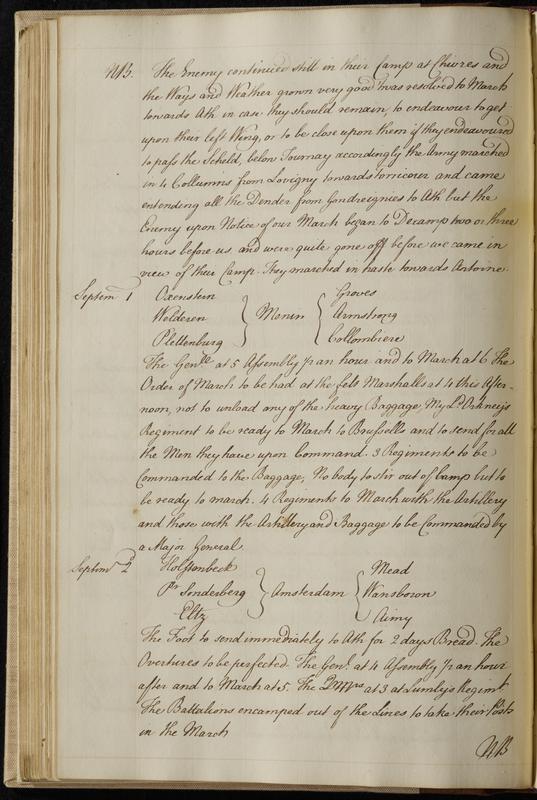 NB. The Enemy continued still in their Camp at Chivres and
the Ways and Weather grown very good 'twas resolved to March
towards Ath in case they should remain, to endeavour to get
upon their left Wing, or to be close upon them if they endeavoured
to pass the Scheld, below Tournay accordingly the Army marched
in 4 Collumns from Lovigny towards and came
entending all the Dender from Gondreignies to Ath but the
Enemy upon Notice of our March began to Decamp two or three
hours before us, and were quite gone off before we came in
view of their Camp. They marched in haste towards Antoine.
Septem 1 Oxenstern Groves
Welderen } Menin { Armstrong
Plettenburg Collombiere
The Genlle at 5 Assembly ½ an hour and to March at 6 The
Order of March to be had at the felt Marshalls at 4 this After-
noon, not to unload any of the heavy Baggage, My Ld. Orkneys
Regiment to be ready to March to Brussells and to send for all
the Men they have upon Command. 3 Regiments to be
Commanded to the Baggage, No body to stir out of Camp but to
be ready to march. 4 Regiments to March with the Artillery
and those with the Artillery and Baggage to be Commanded by
a Major General
Septemr. 2 Holstenbeck Mead
Pr Sonderberg } Amsterdam { Wansboron
Eltz Aimy
The Foot to send immediately to Ath for 2 days Bread. The
Overtures to be perfected. The Genl. at 4 Assembly ½ an hour
after and to March at 5. The QMrs at 3 at Lumly's Regimt.
The Battalions encamped out of the Lines to take their Posts
in the March
NB